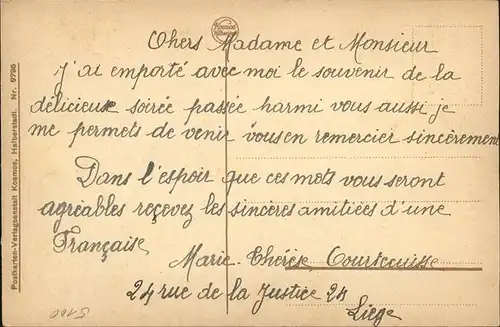 Kosmos
Chers Madame et Monsieur
J'ai emporté avec moi le souvenir de la
délicieuse soirée passée parmi vous aussi je
me permets de venir vous en remercier sincèrement
Dans l'espoir que ces mots vous seront
agréables reçevez les sincères amitiées d'une
Française
Marie-Thérèse Courtecuisse
24 rue de la Justice 24
Liège
5100
Postkarten-Verlagsanstalt Kosmos, Halberstadt. Nr. 9796